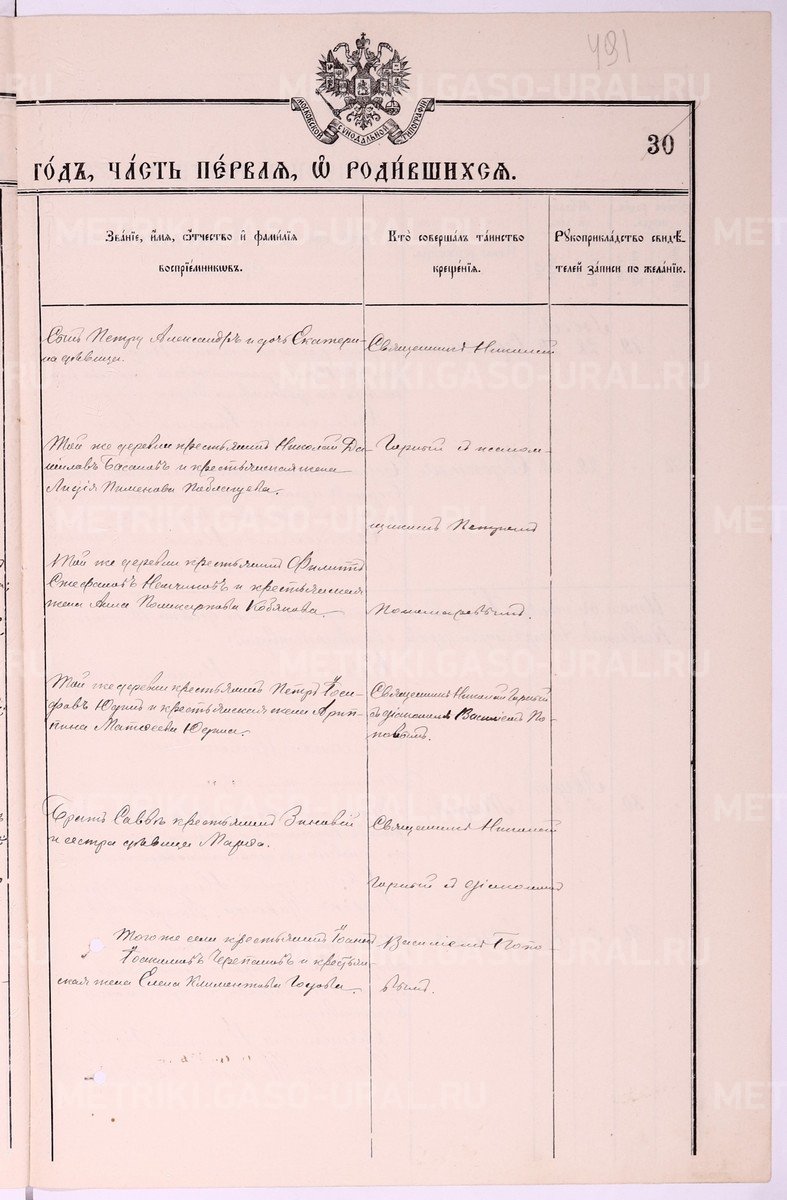 491
МОСКОВСКОЙ СѴНОДАЛЬНОЙ ТИПОГРАФІИ
30
ГО́ДЪ, ЧА́СТЬ ПЕ́РВАЯ, Ѽ РОДИ́ВШИХСЯ.
Зва́нїе, и҆́мя, ѻ҆́тчество и҆ фами́лїя
воспрїе́мникѡвъ.
Кто̀ соверша́лъ та́инство
креще́нїя.
Рꙋкоприкла́дство свидѣ́-
телей за́писи по жела́нїю.
Сынъ Петра Александръ и дочь Екатери-
на дѣвица.
Священникъ Николай
Той же деревни крестьянинъ Николай Да-
ниловъ и крестьянская жена
Лидія Пименова
Горный съ псалом-
щикомъ Петромъ
Той же деревни крестьянинъ Филиппъ
Стефановъ Немчиновъ и крестьянская
жена Анна Поликарпова Кобякова.
Пономаревымъ.
Той же деревни крестьянинъ Петръ Іоси-
фовъ Юдинъ и крестьянская жена Агрип-
пина Матѳеева Юдина.
Священникъ Николай Горный
съ діакономъ Василіемъ По-
повымъ.
Братъ Саввы крестьянинъ Зиновій
и сестра дѣвица Марѳа.
Священникъ Николай
Горный съ діакономъ
Того же села крестьянинъ Іоаннъ
Іоакимовъ Черепановъ и крестьян-
ская жена Елена Климентова
Василіемъ Попо-
вымъ.
METRIKI.GASO-URAL.RU